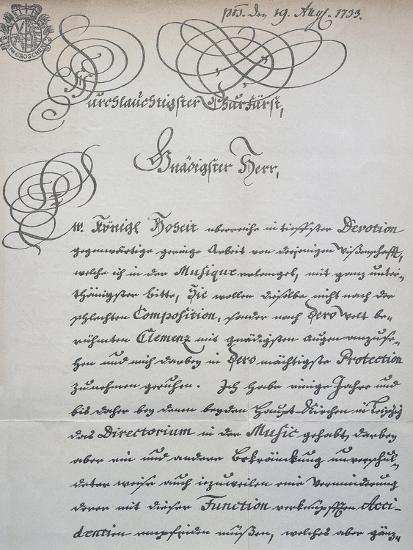 pts. den 19. Aug. 1733.
Durchlauchtigster Churfürst,
Gnädigster Herr,
Ew. Königl. Hoheit überreiche in tieffster Devotion
gegenwärtige geringe Arbeit von derjenigen Wißenschafft,
welche ich in der Musique erlanget, mit ganz unter-
thänigster Bitte, Sie wollen dieselbe nicht nach der
schlechten Composition, sondern nach Dero Welt be-
rühmten Clemenz mit gnädigsten Augen anzuse-
hen und mich darbey in Dero mächtigste Protection
zu nehmen geruhen. Ich habe einige Jahre und
bis daher bey denen beyden Haupt-Kirchen in Leipzig
das Directorium in der Music gehabt, darbey
aber ein und andere Bekränckung unverschul-
deter weise auch iezuweilen eine Verminderung
derer mit dieser Function verknüpfften Acci-
dentien empfinden müßen, welches aber gänz-